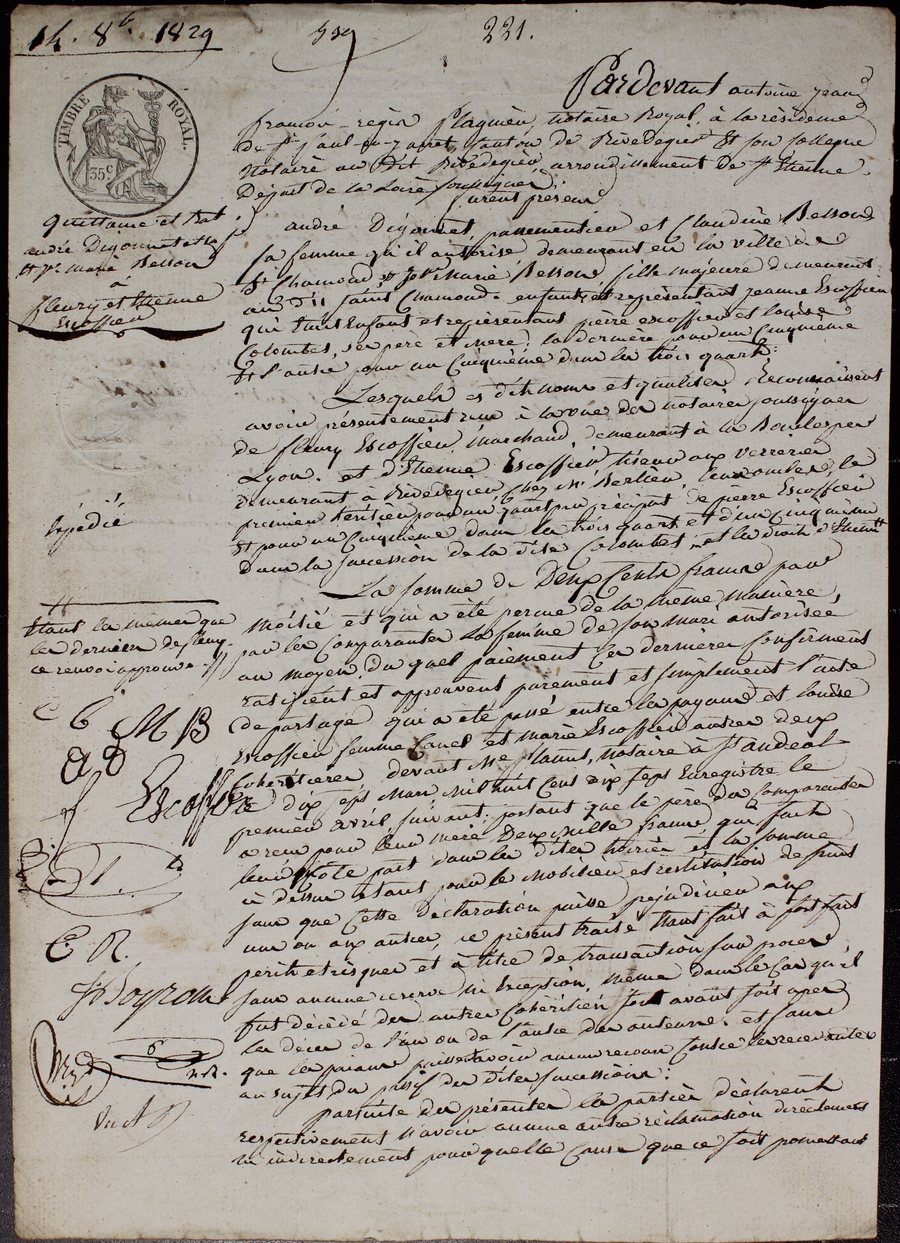 14. 8b. 1829
339
221.
TIMBRE ROYAL.
35c
Pardevant antoine jean
françois-régis Plagnieu notaire Royal, à la résidence
de St paul-en-jarret, canton de Rivedegier Et son collegue
Notaire au Dit Rivedegier arrondissement De St Etienne
Départ de la Loire soussignés
furent présens
quittance et rat
andré Digonnet et sa
fe
et Je marie Besson
à
fleury et Etienne
Escoffier
andré Digonnet, passementier et Claudine Besson
sa femme qu'il autorise demeurant en la ville de
St Chamond & Je Marie Besson fille majeure demeurant
au Dit Saint Chamond. enfants et représentant jeanne Escoffier
qui était Enfant et représentant pierre escoffier et louise
Colombet, ses pere et mere, la derniere pour un Cinquième
Et l'autre pour un Cinquième dans les trois quarts.
Lesquels es dits noms et qualités Reconnaissent
avoir présentement reçu à la vue des notaires soussignés
de fleury Escoffier, Marchand, demeurant à la Boule, per
Lyon. et d'Etienne Escoffier tiseur aux verreries
demeurant à Rivedegier Chez Mr Berlier, leurs oncles, le
premier héritier pour un quart par préciput de pierre Escoffier
Et pour un Cinquième dans les trois quarts et d'un Cinquième
Dans la succession de la dite Colombet, et les droits d'Etienne
Expédié
La somme de Deux Cents francs par
moitié et qui a été perçue de la même manière,
par les Comparants la femme de son mari autorisée
au moyen du quel paiement Ces derniers confirment
ratifient et approuvent purement et simplement l'acte
de partage qui a été passé entre les payans et louise
Escoffier femme Canel et marie Escoffier autres deux
Cohéritières devant Me notaire à St andéol
le dix sept Mars Mil huit Cent dix sept Enregistré le
premier avril suivant; portant que le père des Comparantes
a reçu pour leur mère Deux mille francs qui fait
leur quote part dans les dites hoiries et la somme
ci dessus étant pour le mobilier et restitution de fruits
sans que Cette déclaration puisse préjudicier aux
uns ou aux autres, ce présent traité étant fait à fortfait
périls et risques et à titre de transaction sur procès,
sans aucune reserve ni Exception, même dans le Cas qu'il
fut décédé des autres Cohéritiers soit avant soit après
le décès de l'un ou de l'autre des auteurs. et sans
que les payans puissent avoir aucun recours Contre les recevantes
au sujet du passif des dites successions.
partant des présentes les parties déclarent
respectivement n'avoir aucune autre réclamation directement
ni indirectement pour quelle Cause que ce soit promettant
étant les mêmes que
les derniers de fleury
ce renvoi approuvé
C B M B
A D
f Escoffier
E. R.
Boyron